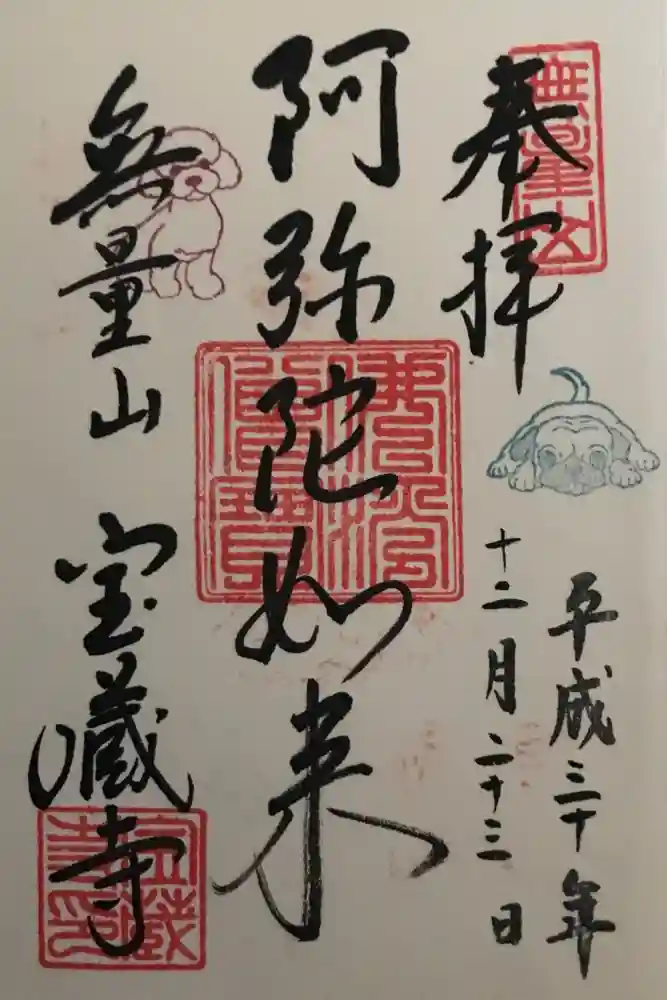 奉拝
無量山
平成三十年
十二月二十三日
阿弥陀如来
佛法僧寶
無量山
宝蔵寺